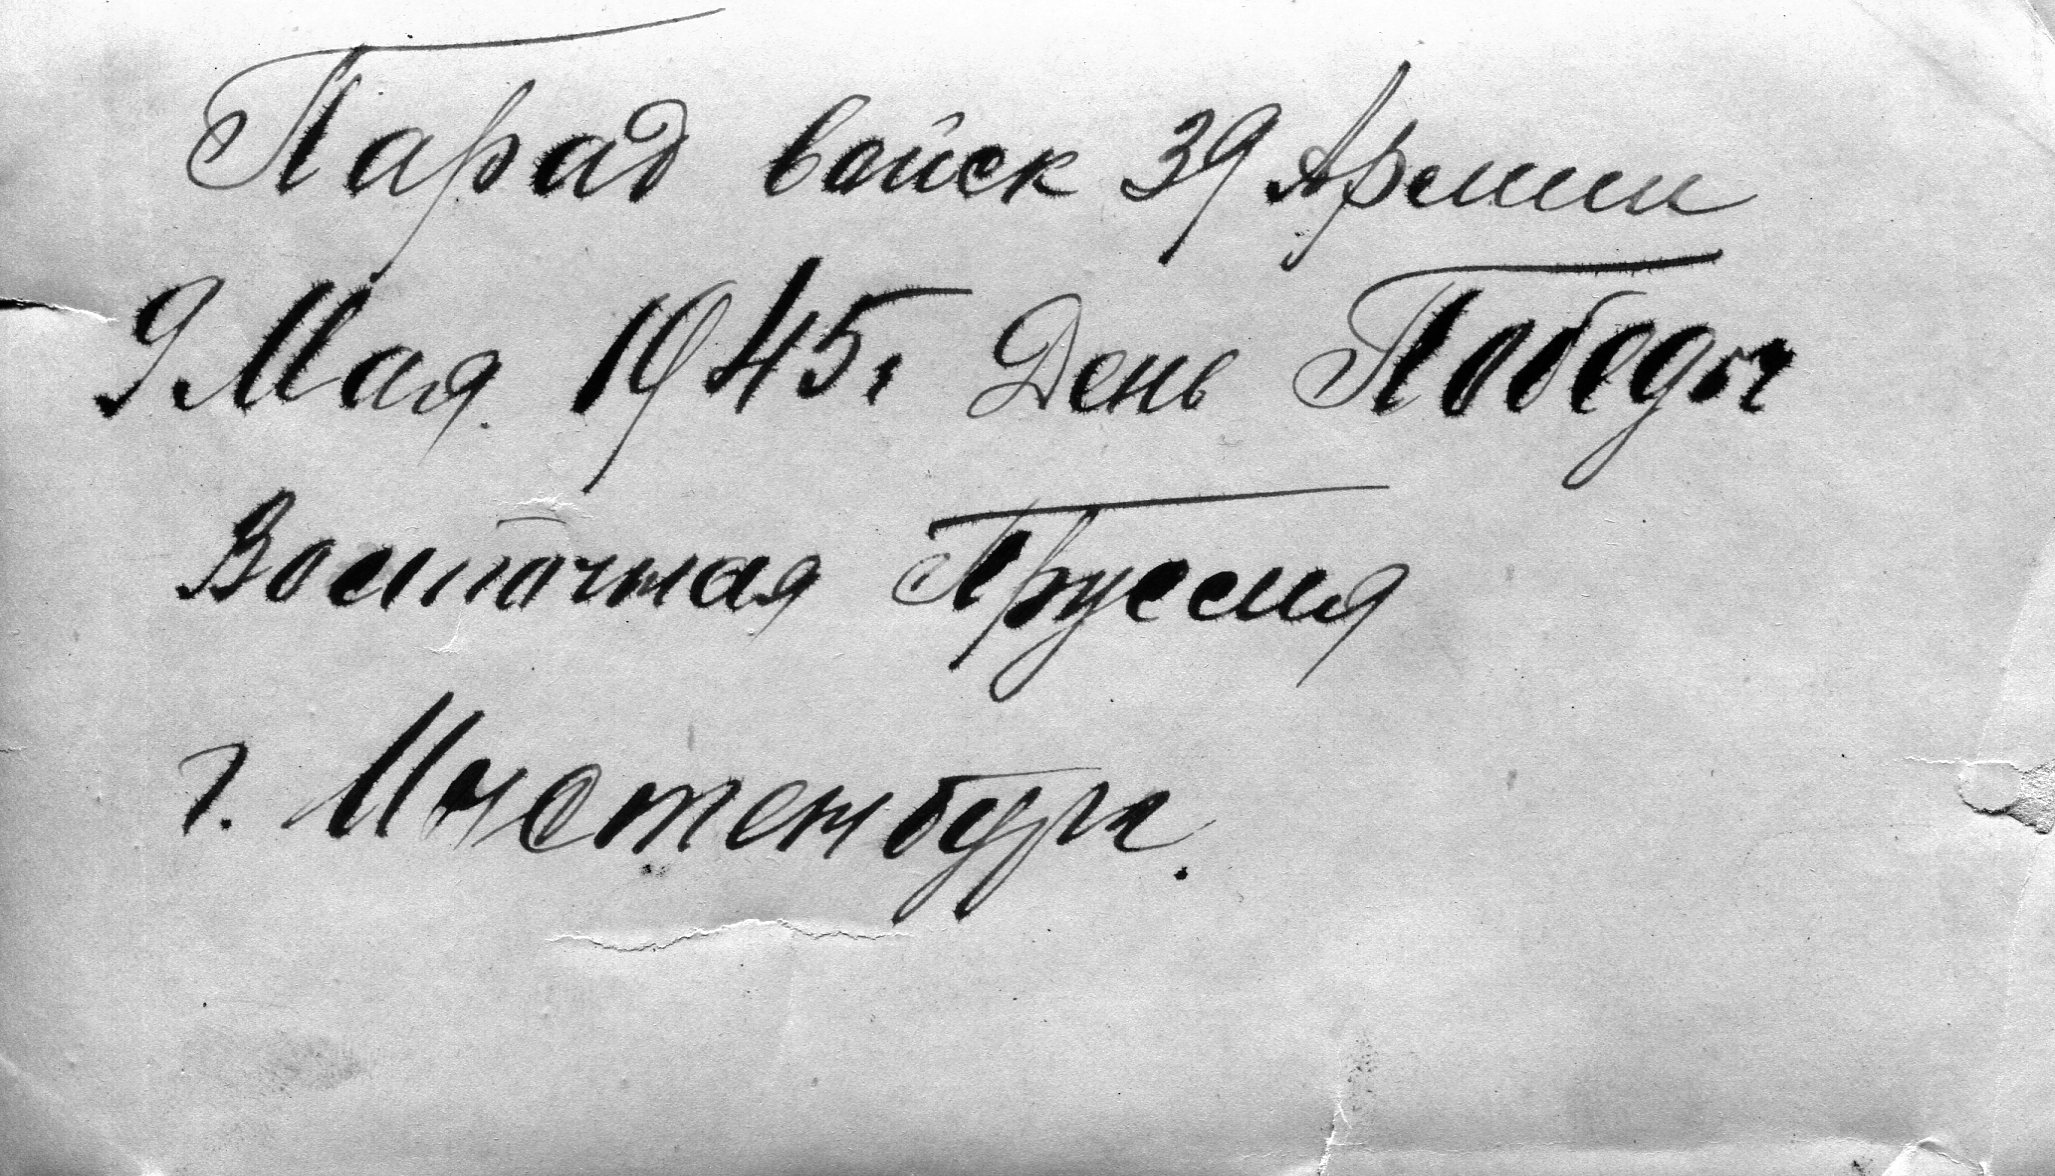 Парад войск 39 Армии
9 Мая 1945г День Победы
Восточная Пруссия
г. Инстенбург.